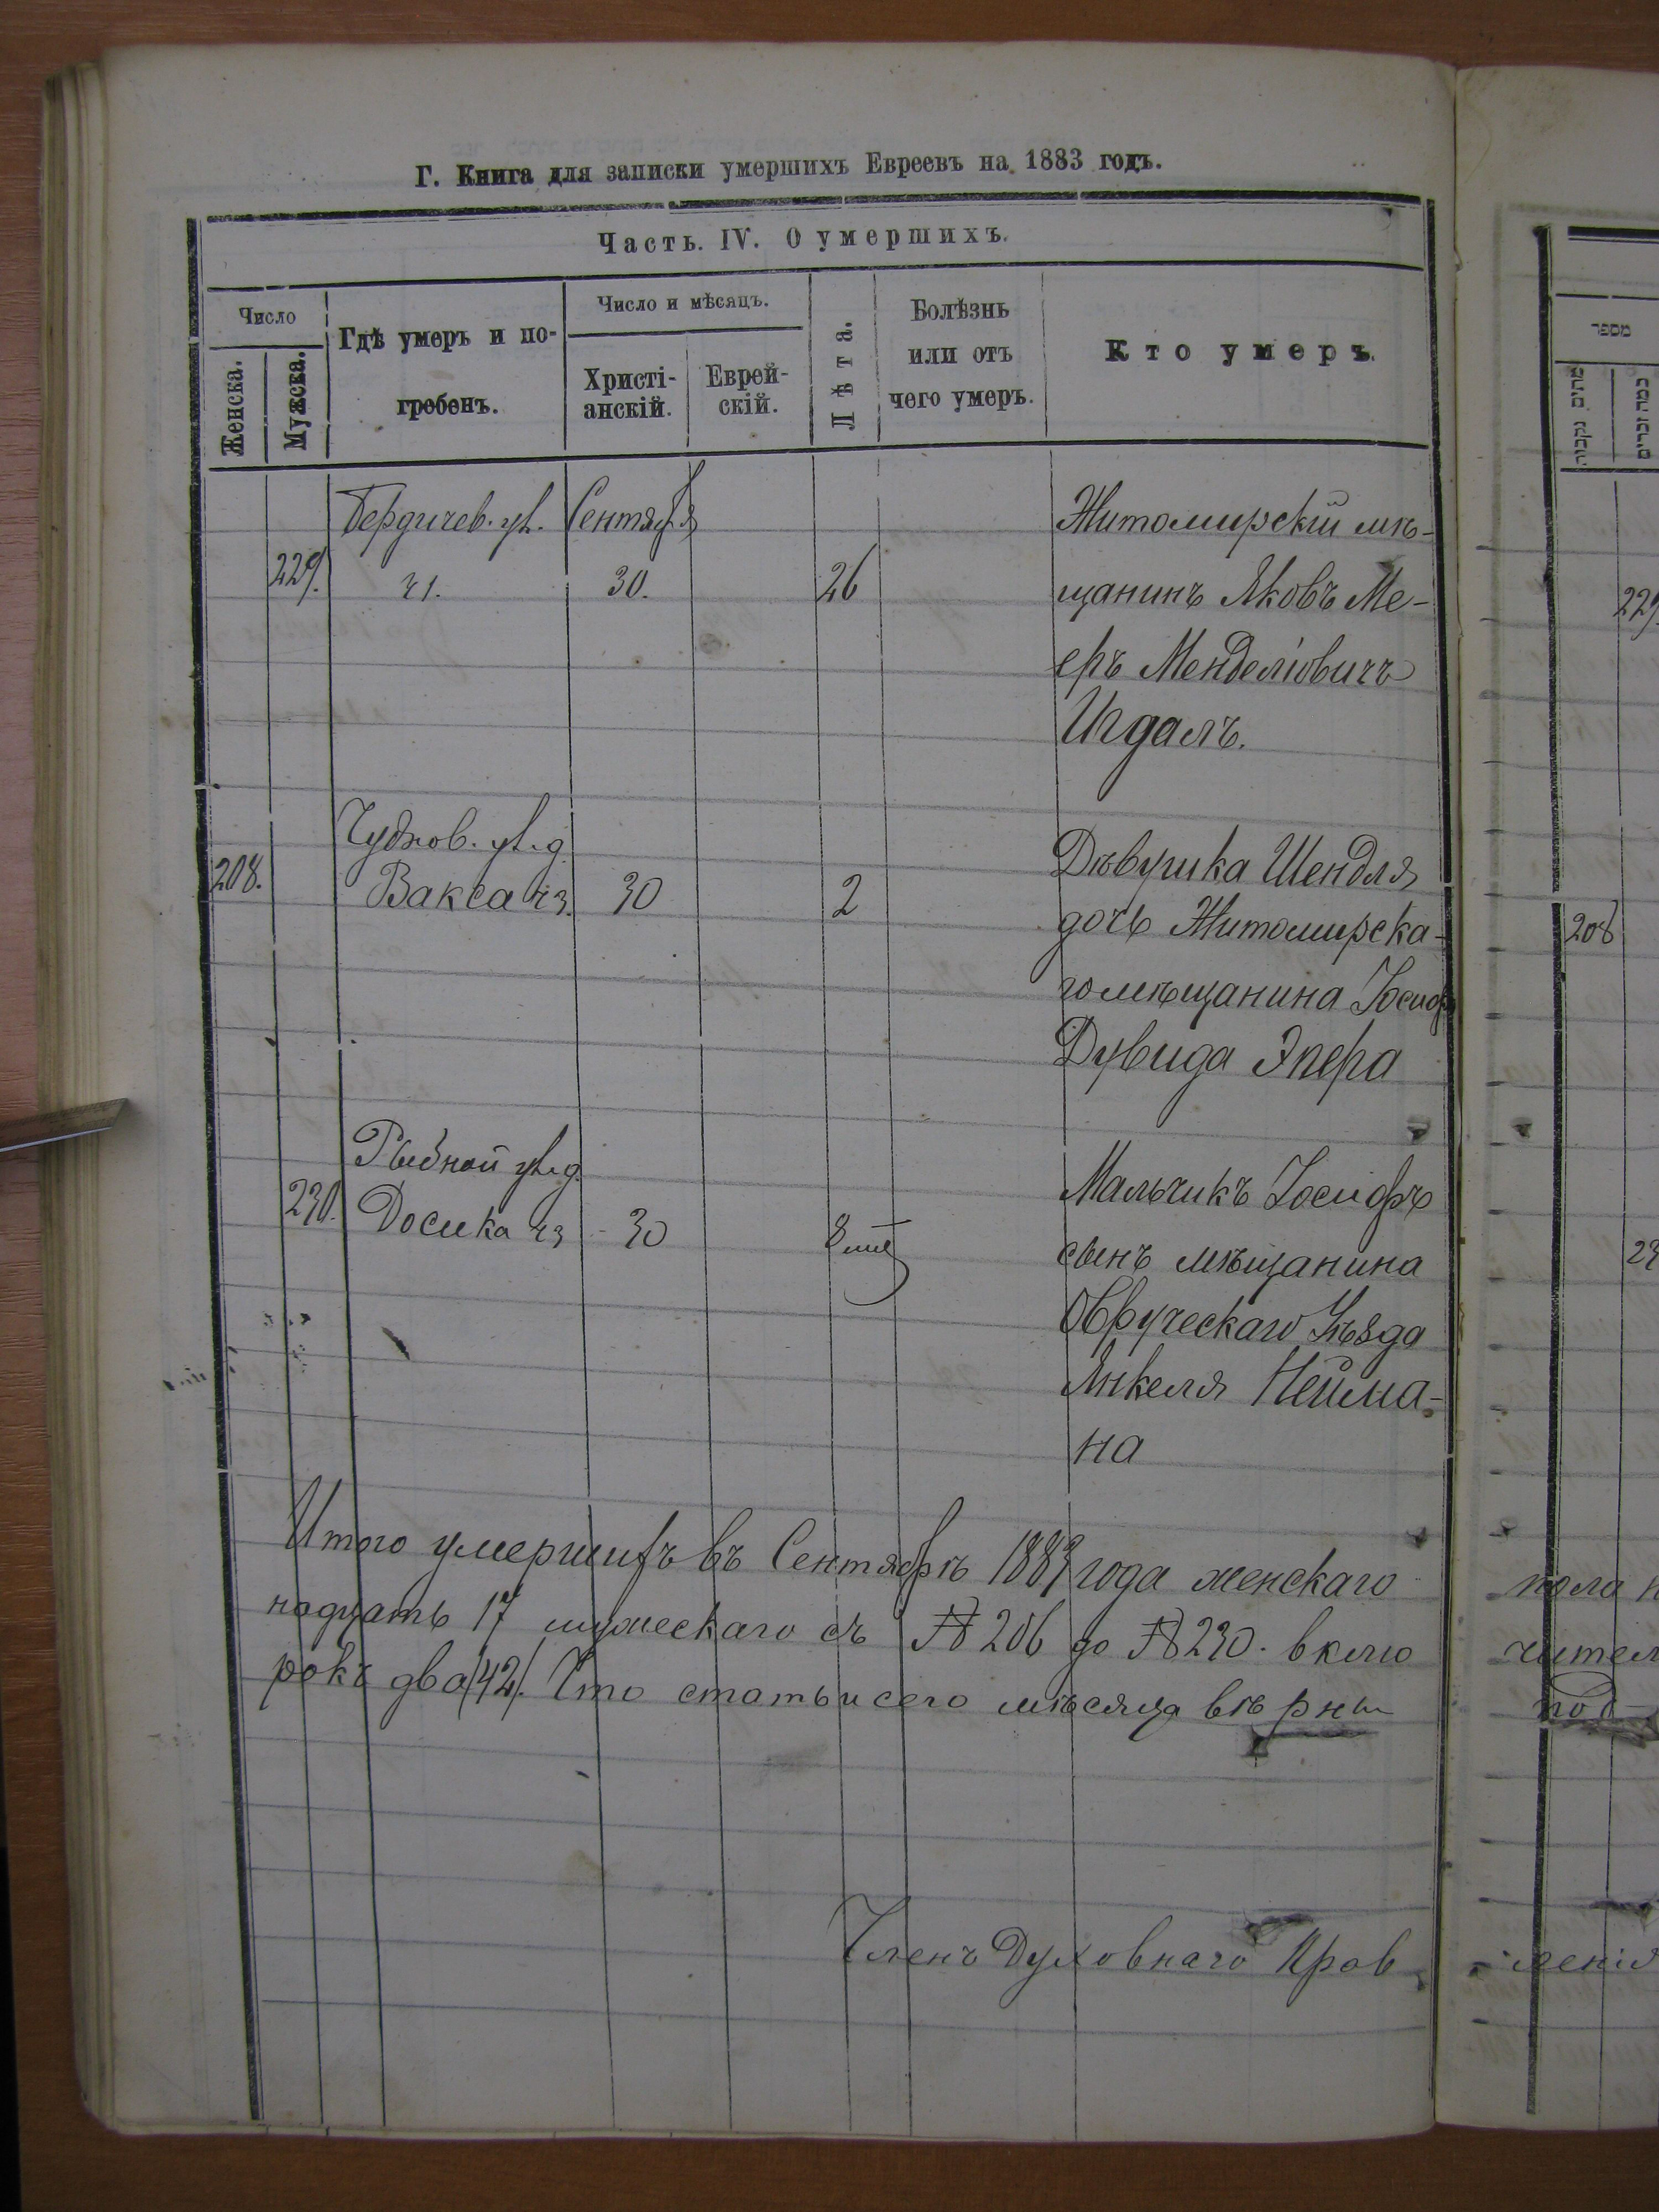 Г. Книга для записки умершихъ Евреевъ на 1883 годъ.
Часть. IV. О умершихъ.
Число
Женска.
Мужска.
Гдѣ умеръ и по-
гребенъ.
Число и мѣсяцъ.
Христі-
анскій.
Еврей-
скій.
Лѣта.
Болѣзнь
или отъ
чего умеръ.
Кто умеръ.
229. Бердичев. ул. Сентября 30. 26
Житомирскій мѣ-
щанинъ Яковъ Ме-
еръ Менделіовичъ
Игдалъ.
208. Чуднов. ул. д.
Вакса чз. 30 2
Дѣвушка Шендля
дочь Житомирска-
го мѣщанина Іосиф
Дувида Эпера
230. Рыбной ул. д.
Досика чз 30 8
Мальчикъ Іосифъ
сынъ мѣщанина
Овруческаго Уѣзда
Янкеля Нейма-
на
Итого умершихъ въ Сентябрѣ 1883 года женскаго
надцать 17 мужескаго съ № 206 до № 230. вклю
рокъ два /42/. Что статьи сего мѣсяца вѣрны
Членъ Духовнаго Прав
מספר
229
208
23
пола
чител
под
ленія